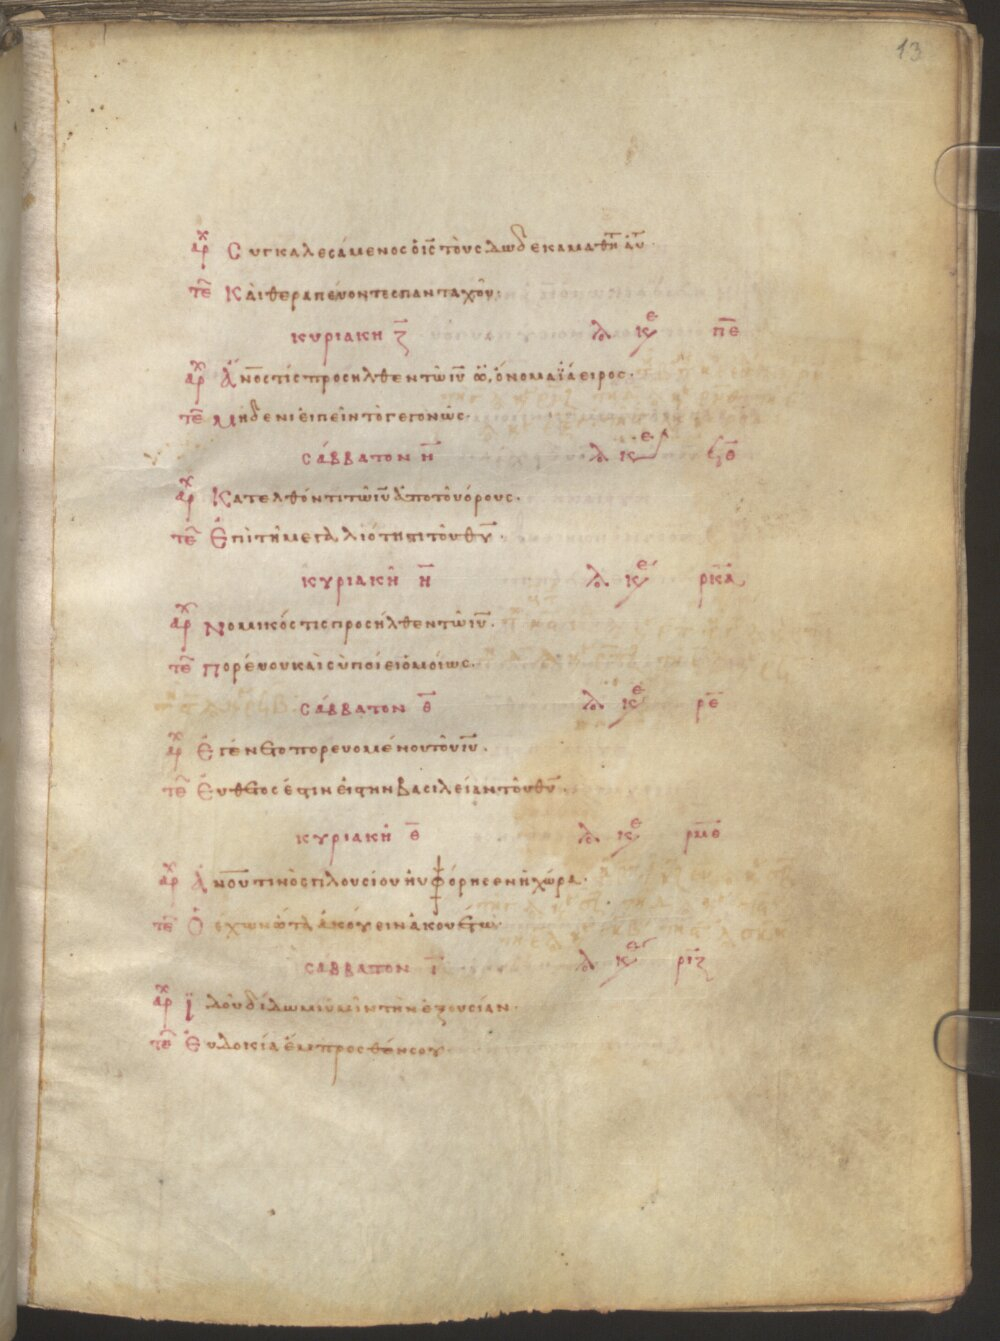 13
ἀρχ Συγκαλεσάμενος ὁ ις̅ τοὺς δώδεκα μαθητ αυ
τε̅ Καὶ θεραπεύοντες πανταχοῦ·
κυριακη ζ̅ λο κε πε̅
ἀρχ Ἄνο̅ς τίς προσῆλθεν τῶ ιυ̅ ὧ, ὄνομα ϊάειρος·
τε̅ Μηδενὶ εἰπεῖν τὸ γεγονὼς·
σάββατον η̅ λο κε
ἀρχ Κατελθόντι τῶ ιυ̅ ἀπο τοῦ όρους·
τε̅ Ἐπὶ τῆ μεγαλιότητι τοῦ θυ̅·
κυριακῆ η̅ λο κε ρκα
ἀρχ Νομικός τις προσῆλθεν τῶ ιυ̅·
τε̅ Πορεύου καὶ σὺ ποίει ὁμοίως·
σάββατον θ̅ λο κε ρε̅
ἀρχ Ἐγένετο πορευομένου τοῦ ιυ̅·
τε̅ Εὔθετος ἐστιν εἰς την βασιλείαν τοῦ θυ̅·
κυριακῆ θ̅ λο κε ρμθ
ἀρχ Ἀνο̅υ τινὸς πλουσίου ηυφόρησεν ἡ χώρα·
τε̅ Ὁ ἔχων ὦτα ἀκούειν ἀκουέτω·
σαββατον ι̅ λο κε ριζ
ἀρχ Ϊδοὺ δίδωμι ὑμῖν τὴν ἐξουσίαν·
τε̅ Εὐδοκία ἔμπροσθέν σου·